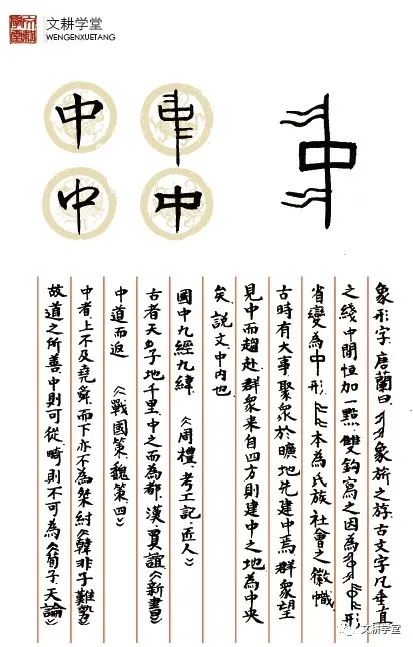 文耕学堂
WENGENXUETANG
中 中 中
中 中
象形字.唐蘭曰.象之古文字凡垂直
之綫中間恒加一點.雙鈎寫之因為形
省變為中形.本為氏族社會之徽幟
古時有大事聚眾於曠地先建中焉群眾望
見中而趨赴.群眾来自四方則建中之地為中央
矣.説文.中内也
國中九經九緯《周禮.考工記.匠人》
古者天子地千里.中之而為都.漢賈誼《新書》
中道而返《戰國策.魏策四》
中者.上不及堯舜.而下亦不為桀紂《韓非子難勢》
故道之所善中則可從.畸則不可為《荀子天論》
文耕学堂